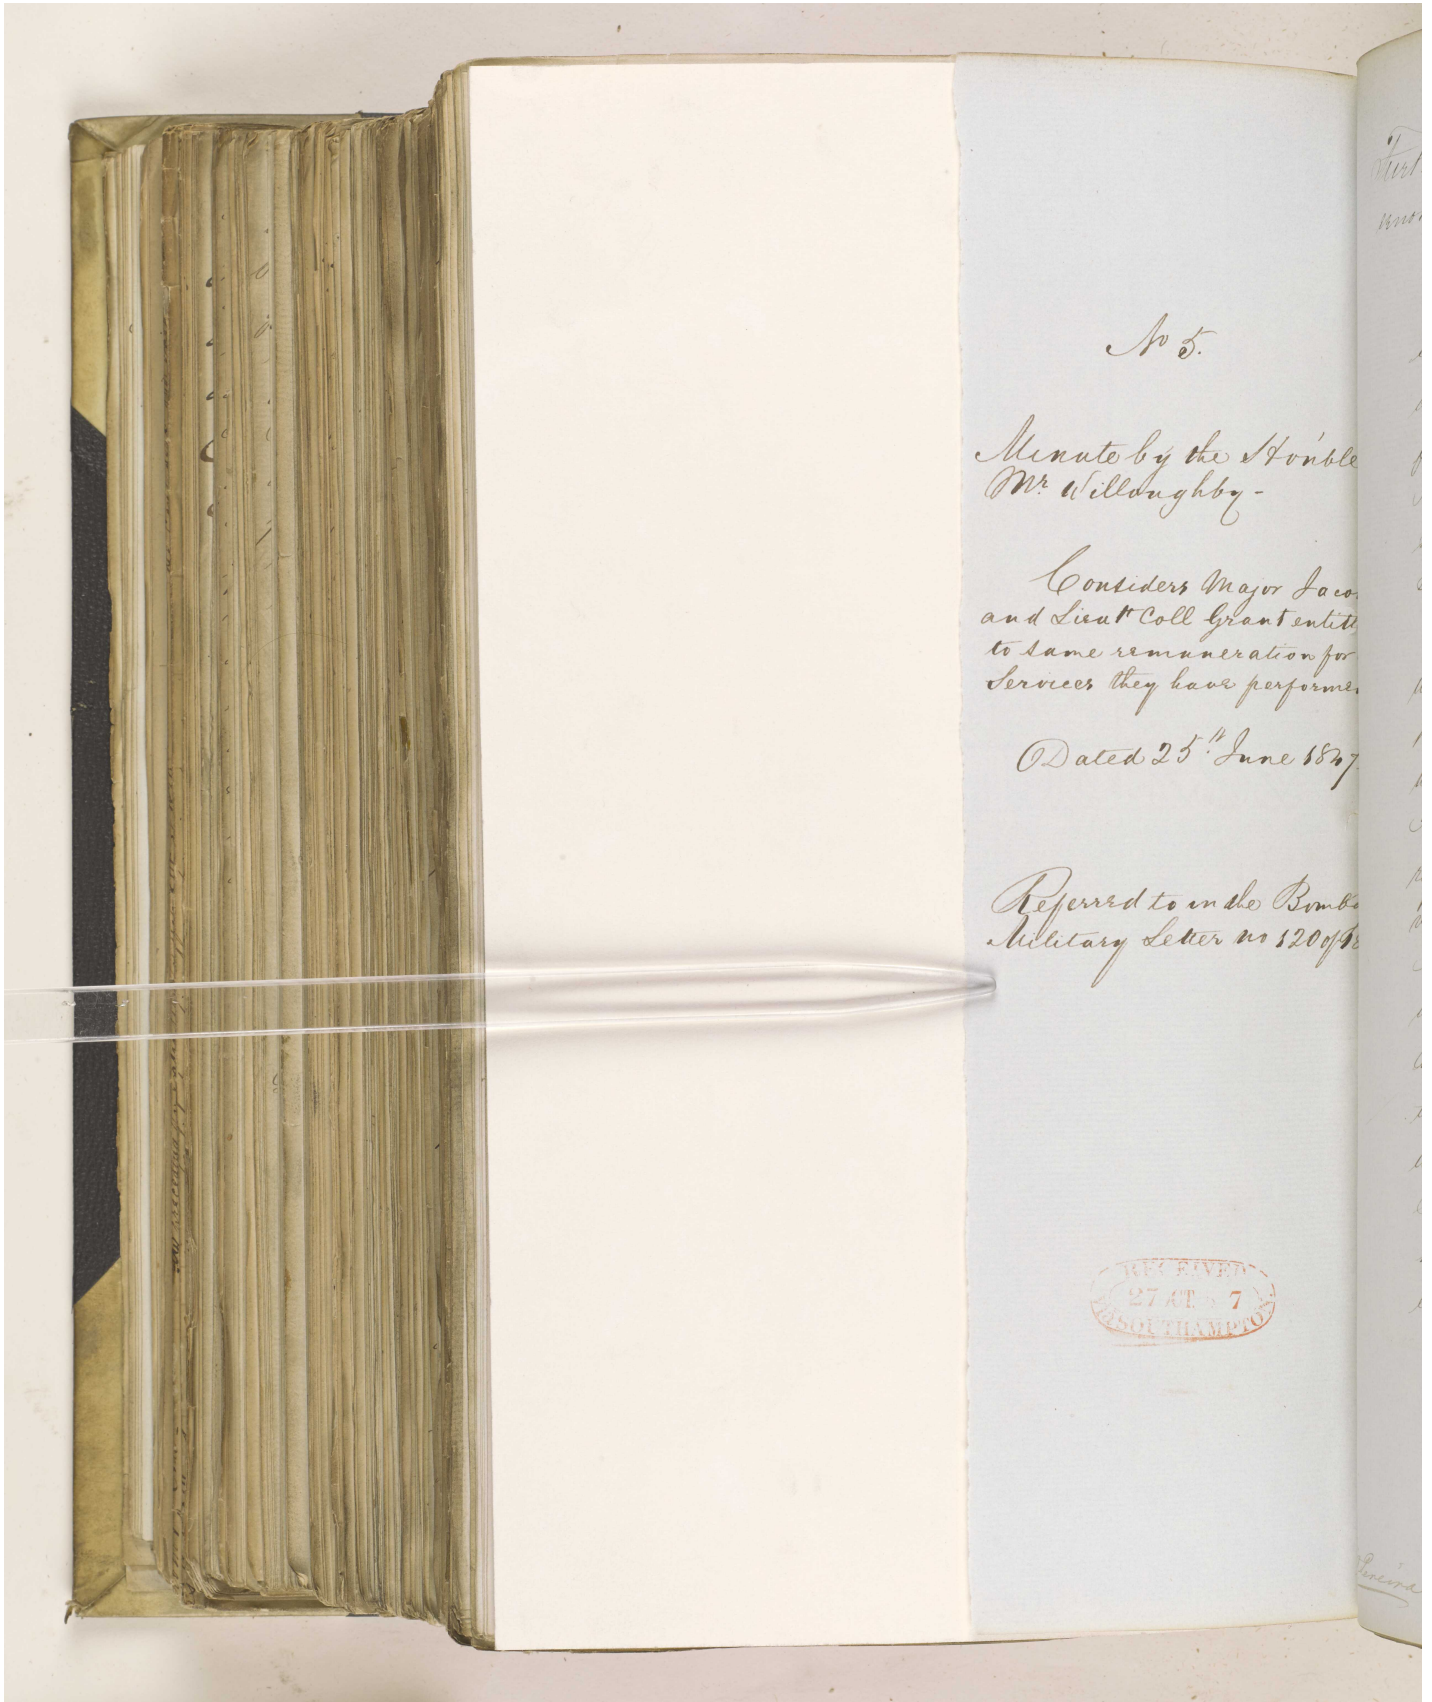 No 5.
Minute by the Hon'ble
Mr Willoughby -
Considers Major Jaco
and Lieut Coll Grant entitl
to some remuneration for
Services they have performe
Dated 25th June 1847
Referred to in the Bomba
Military Letter no 120 of 18
RECEIVED
27 OCT 7
SOUTHAMPTON
Furt
Pereira